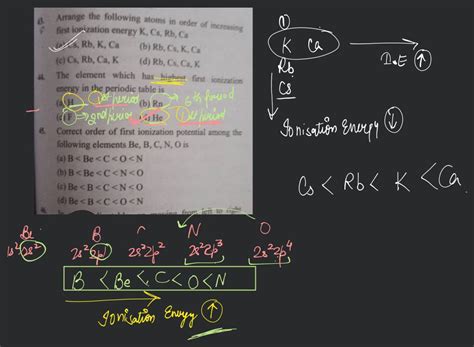 Arrange the following atoms in order of increasing
first ionization energy K, Cs, Rb, Ca
Cs, Rb, K, Ca (b) Rb, Cs, K, Ca
(c) Cs, Rb, Ca, K (d) Rb, Cs, Ca, K
The element which has highest first ionization
energy in the periodic table is
1st period (b) Rn 6th period
2nd period He 1st period
Correct order of first ionization potential among the
following elements Be, B, C, N, O is
(a) B < Be < C < O < N
(b) B < Be < C < N < O
(c) Be < B < C < N < O
(d) Be < B < C < O < N
①
K Ca
I.E ↑
Rb
Cs
Ionisation Energy ↓
Cs < Rb < K < Ca
Be B C N O
1s² 2s² 2s² 2p¹ 2s² 2p² 2s² 2p³ 2s² 2p⁴
B < Be < C < O < N
Ionisation Energy ↑